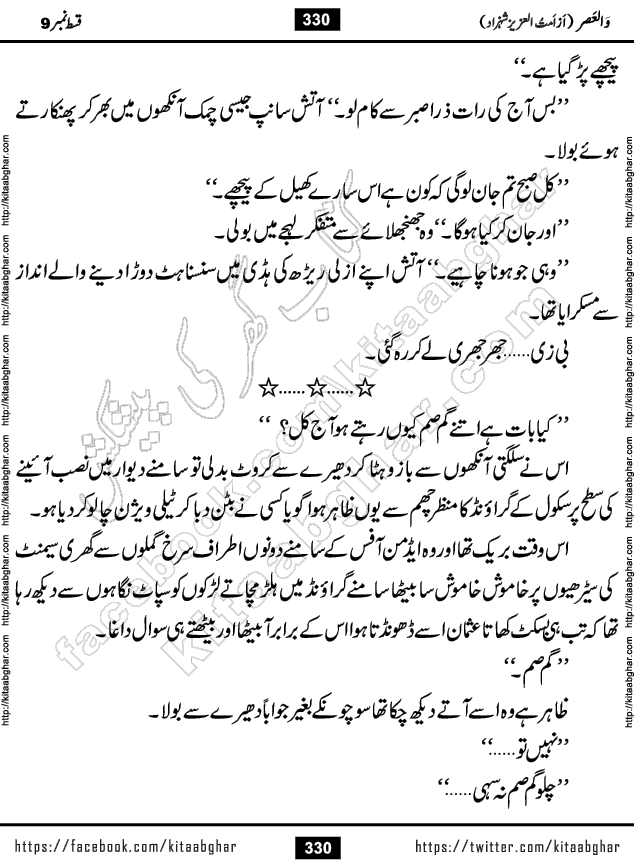 والعصر (از اَمتُ العزیز شہزاد)
330
قسط نمبر 9
پیچھے پڑ گیا ہے۔‘‘
’’بس آج کی رات ذرا صبر سے کام لو۔‘‘ آتش سانپ جیسی چمک آنکھوں میں بھر کر پھنکارتے
ہوئے بولا۔
’’کل صبح تم جان لو گی کہ کون ہے اس سارے کھیل کے پیچھے۔‘‘
’’اور جان کر کیا ہوگا۔‘‘ وہ جھنجھلائے سے متفکر لہجے میں بولی۔
’’وہی جو ہونا چاہیے۔‘‘ آتش اپنے ازلی ریڑھ کی ہڈی میں سنسناہٹ دوڑا دینے والے انداز
سے مسکرایا تھا۔
بی زی......جھرجھری لے کر رہ گئی۔
☆......☆......☆
’’کیا بات ہے اتنے گم صم کیوں رہتے ہو آج کل؟ ‘‘
اس نے سلگتی آنکھوں سے بازو ہٹا کر دھیرے سے کروٹ بدلی تو سامنے دیوار میں نصب آئینے
کی سطح پر سکول کے گراؤنڈ کا منظر چھم سے یوں ظاہر ہوا گویا کسی نے بٹن دبا کر ٹیلی ویژن چالو کر دیا ہو۔
اس وقت بریک تھا اور وہ ایڈمن آفس کے سامنے دونوں اطراف سرخ گملوں سے گھری سیمنٹ
کی سیڑھیوں پر خاموش خاموش سا بیٹھا سامنے گراؤنڈ میں ہلڑ مچاتے لڑکوں کو سپاٹ نگاہوں سے دیکھ رہا
تھا کہ تب ہی بسکٹ کھاتا عثمان اسے ڈھونڈتا ہوا اس کے برابر آ بیٹھا اور بیٹھتے ہی سوال داغا۔
’’گم صم۔‘‘
ظاہر ہے وہ اسے آتے دیکھ چکا تھا سو چونکے بغیر جواباً دھیرے سے بولا۔
’’نہیں تو......‘‘
’’چلو گم صم نہ سہی......‘‘
https://facebook.com/kitaabghar
330
https://twitter.com/kitaabghar
http://kitaabghar.com http://kitaabghar.com http://kitaabghar.com http://kitaabghar.com http://kitaabghar.com http://kitaabghar.com
http://kitaabghar.com http://kitaabghar.com http://kitaabghar.com http://kitaabghar.com http://kitaabghar.com http://kitaabghar.com
کتاب گھر کی پیشکش
facebook.com/kitaabghar
kitaabghar.com